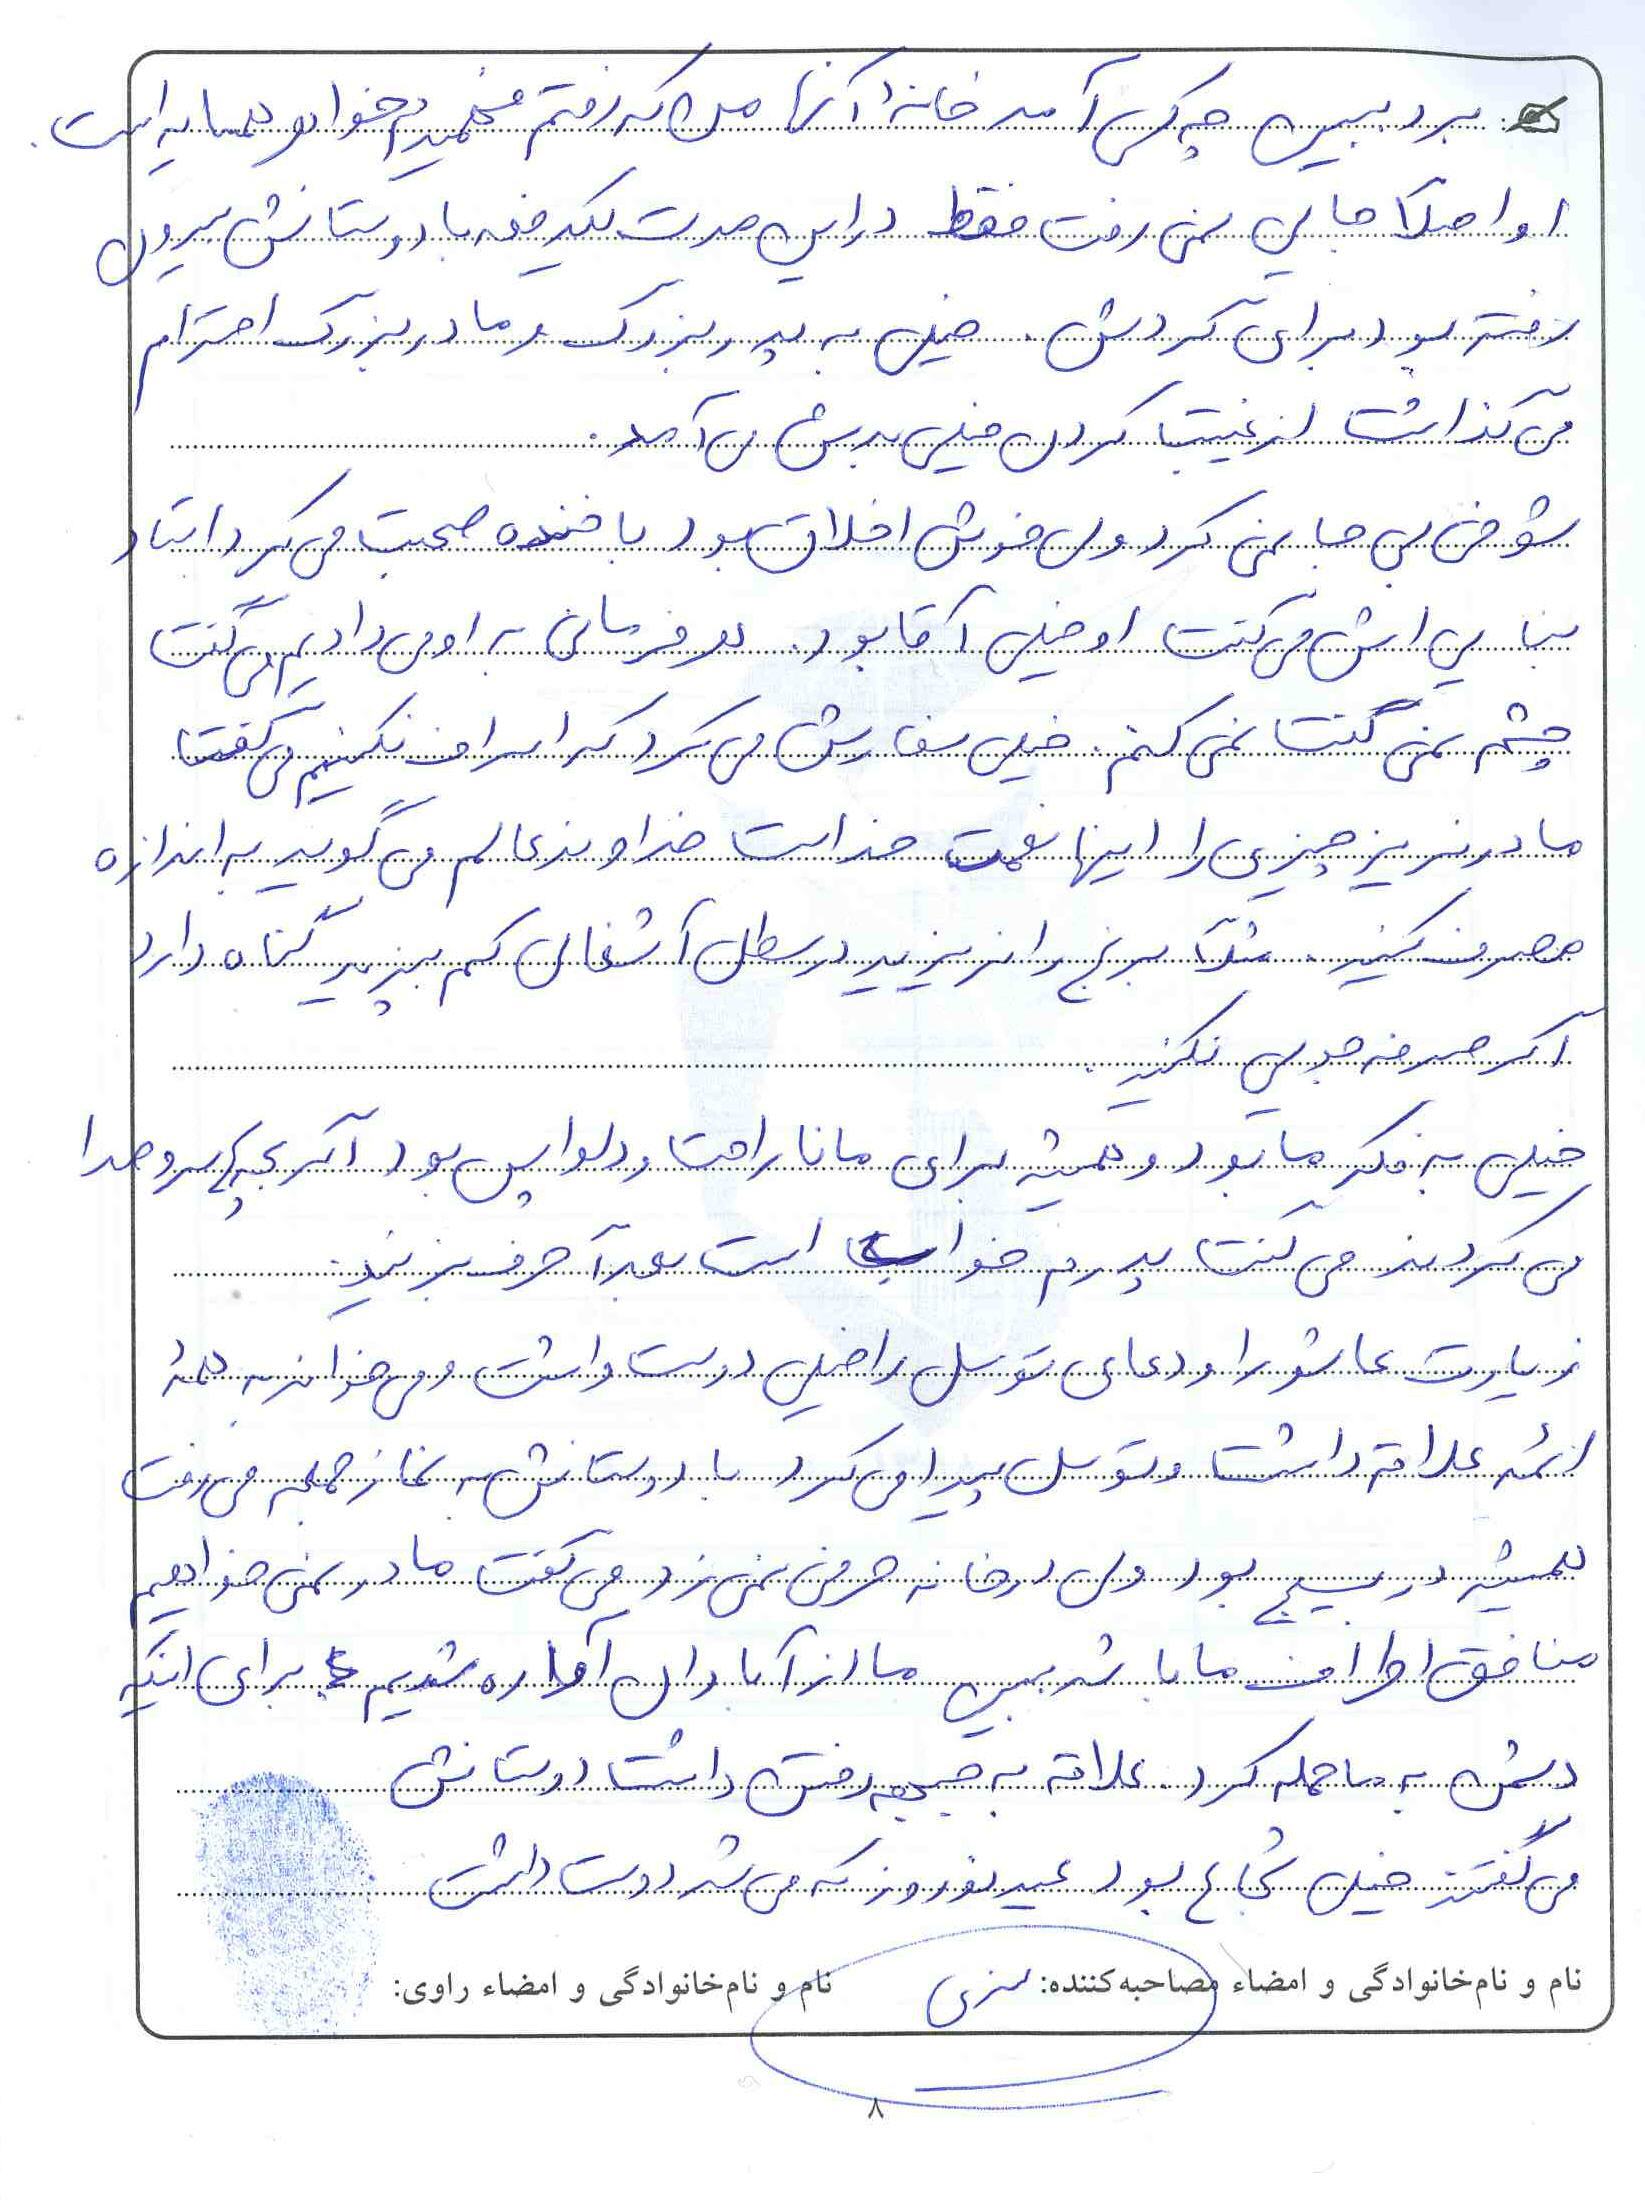 برو ببین چه کسی آمد خانهٔ آنها من که رفتم فهمیدم خواهر همسایه است.
او اصلاً جایی نمی رفت فقط در این مدت یکدفعه با دوستانش بیرون
رفته بود برای گردش. خیلی به پدربزرگ و مادربزرگ احترام
می گذاشت از غیبت کردن خیلی بدش می آمد.
شوخی بی جا نمی کرد ولی خوش اخلاق بود با خنده صحبت می کرد استاد
بنایی اش می گفت او خیلی آقا بود. هر فرمانی به او می دادیم می گفت
چشم نمی گفت نمی کنم. خیلی سفارش می کرد که اسراف نکنیم می گفت
مادر نریز چیزی را اینها نعمت خداست خداوند عالم می گوید به اندازه
مصرف کنید. مثلاً برنج را نریزید در سطل آشغال کم بپزید گناه دارد
اگر صرفه جویی نکنید.
خیلی به فکر ما بود و همیشه برای ما ناراحت و دلواپس بود اگر بچه ها سر و صدا
می کردند می گفت پدرم خواب است بعداً حرف بزنید.
زیارت عاشورا و دعای توسل را خیلی دوست داشت و می خواند به همهٔ
ائمه علاقه داشت و توسل پیدا می کرد با دوستانش به نماز جمعه می رفت
همیشه در بسیج بود ولی در خانه حرفی نمی زد می گفت مادر نمی خواهیم
منافق اطراف ما باشد ببین ما از آبادان آواره شدیم برای اینکه
دشمن به ما حمله کرد. علاقه به جبهه رفتن داشت دوستانش
می گفتند خیلی شجاع بود عید نوروز که می شد دوست داشت
نام و نام‌خانوادگی و امضاء مصاحبه‌کننده: نام و نام‌خانوادگی و امضاء راوی:
۸